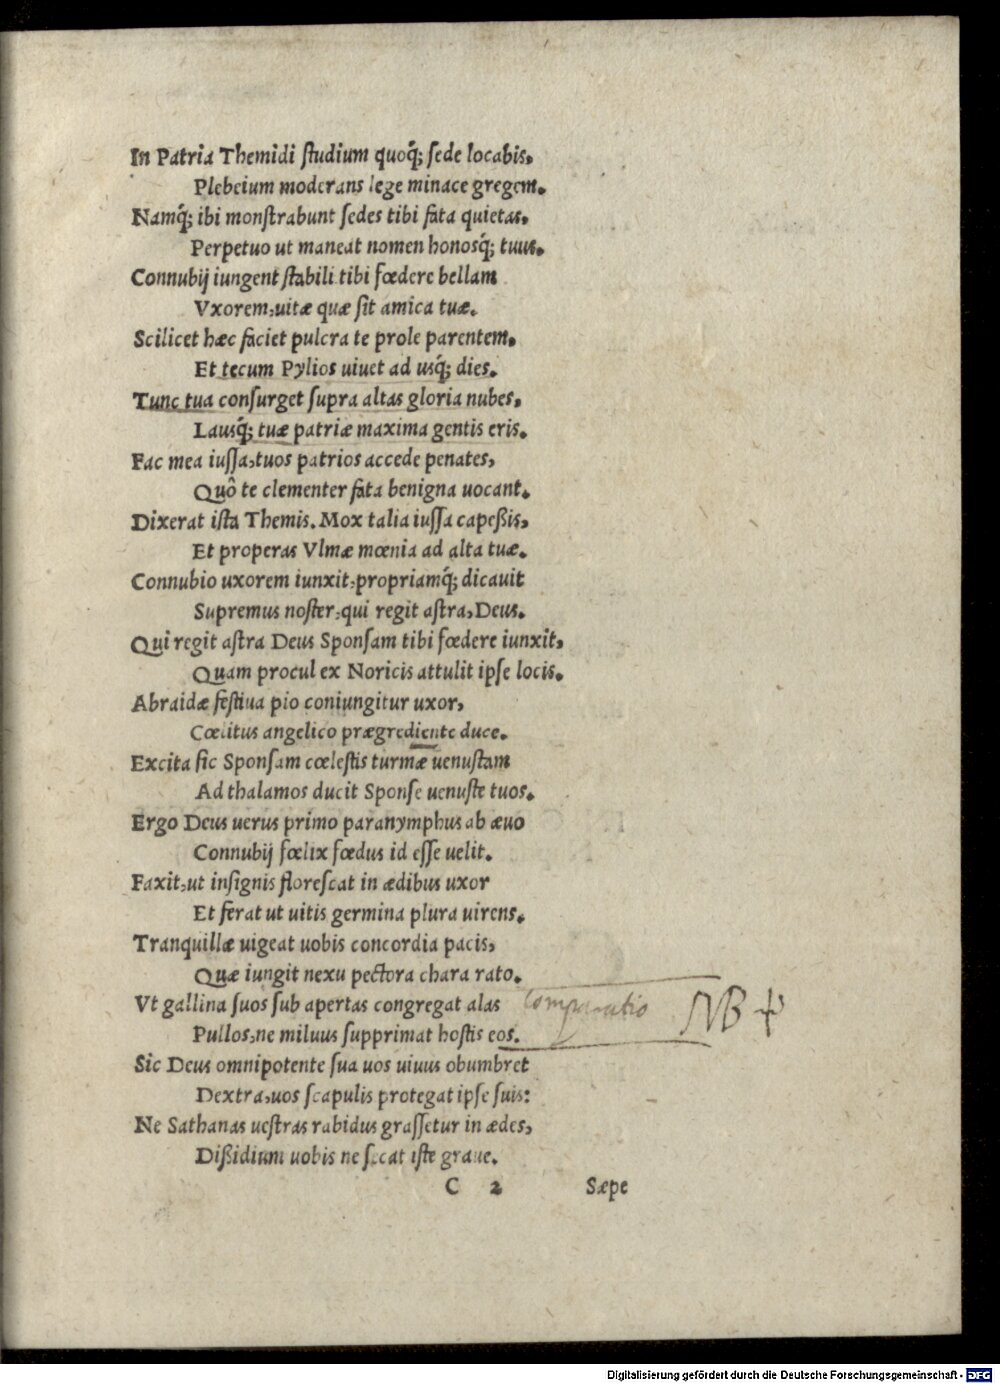 In Patria Themidi ſtudium quoq́; ſede locabis,
Plebeium moderans lege minace gregem.
Namq́; ibi monſtrabunt ſedes tibi fata quietas,
Perpetuo ut maneat nomen honosq́; tuus.
Connubij iungent ſtabili tibi fœdere bellam
Vxorem, uitæ quæ ſit amica tuæ.
Scilicet hæc faciet pulcra te prole parentem,
Et tecum Pylios uiuet ad usq́; dies.
Tunc tua conſurget ſupra altas gloria nubes,
Lausq́; tuæ patriæ maxima gentis eris.
Fac mea iuſſa, tuos patrios accede penates,
Quô te clementer fata benigna uocant.
Dixerat iſta Themis. Mox talia iuſſa capeßis,
Et properas Vlmæ mœnia ad alta tuæ.
Connubio uxorem iunxit, propriamq́; dicauit
Supremus noſter, qui regit aſtra, Deus.
Qui regit aſtra Deus Sponſam tibi fœdere iunxit,
Quam procul ex Noricis attulit ipſe locis.
Abraidæ feſtiua pio coniungitur uxor,
Cœlitus angelico prægrediente duce.
Excita ſic Sponſam cœleſtis turmæ uenuſtam
Ad thalamos ducit Sponſe uenuſte tuos.
Ergo Deus uerus primo paranymphus ab æuo
Connubij fœlix fœdus id eſſe uelit.
Faxit, ut inſignis floreſcat in ædibus uxor
Et ferat ut uitis germina plura uirens.
Tranquillæ uigeat uobis concordia pacis,
Quæ iungit nexu pectora chara rato.
Vt gallina ſuos ſub apertas congregat alas Comparatio NB
Pullos, ne miluus ſupprimat hoſtis eos.
Sic Deus omnipotente ſua uos uiuus obumbret
Dextra, uos ſcapulis protegat ipſe ſuis:
Ne Sathanas ueſtras rabidus graſſetur in ædes,
Dißidium uobis ne ſecat iſte graue.
C 2 Sæpe
Digitalisierung gefördert durch die Deutsche Forschungsgemeinschaft - DFG